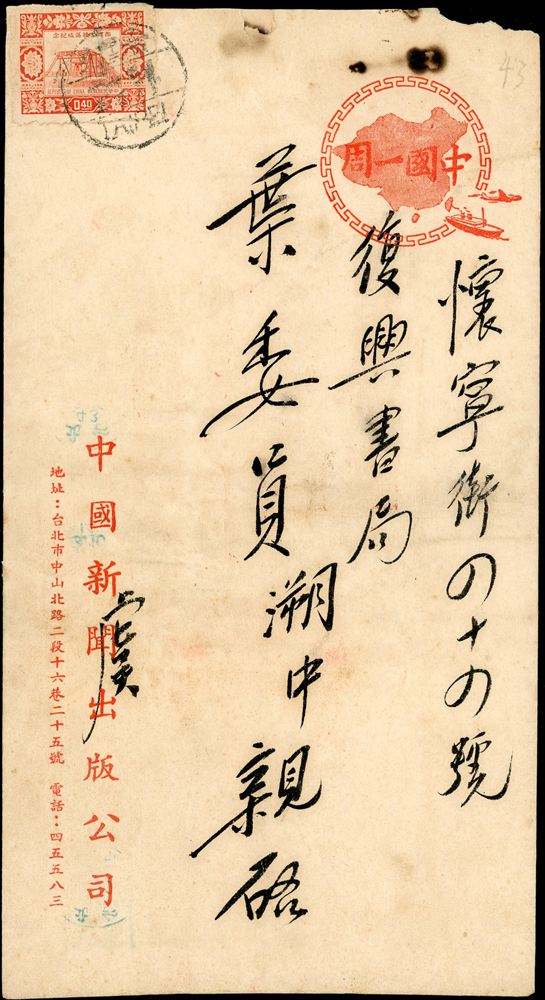 中國一周
43
懷寧街四十四號
復興書局
葉委員溯中親啓
中國新聞出版公司
地址：台北市中山北路二段十六巷二十五號 電話：四五五八三
西螺大橋落成紀念
0.40